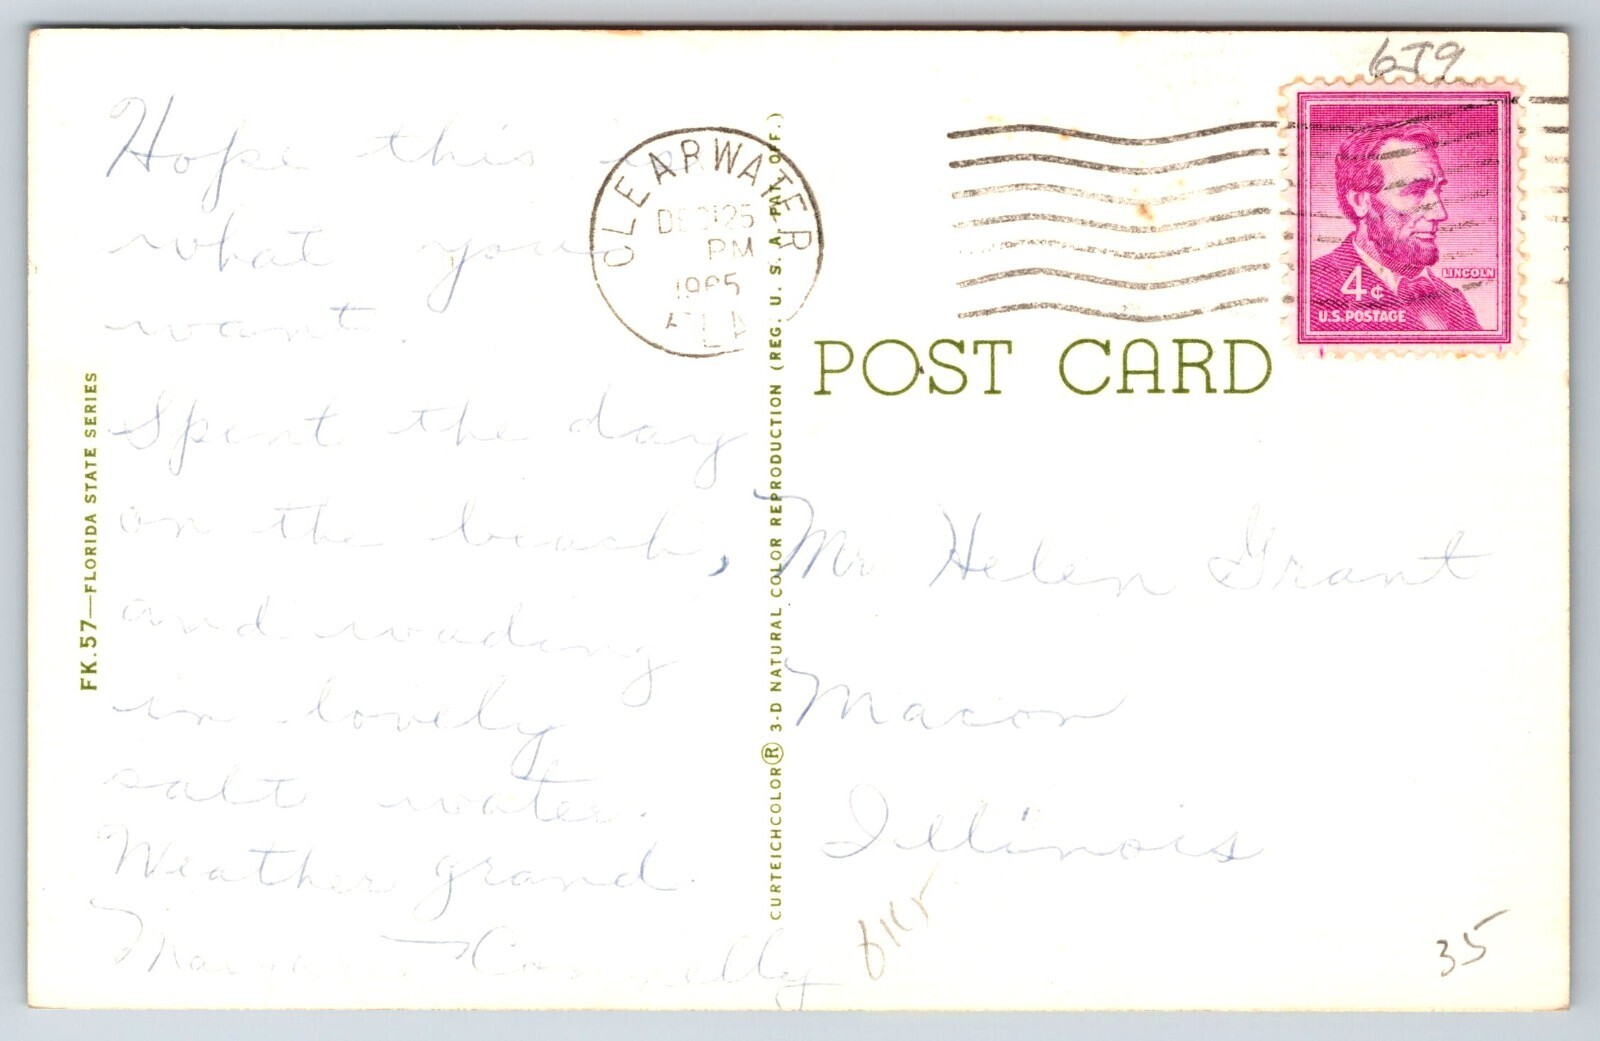 Hope this is
what you
want.
Spent the day
on the beach,
and wading
in lovely
salt water.
Weather grand.
Connelly
CLEARWATER
DEC 25
PM
1965
FLA
659
LINCOLN
4¢
U.S. POSTAGE
POST CARD
Mr Helen Grant
Macon
Illinois
35
FK.57—FLORIDA STATE SERIES
CURTEICHCOLOR® 3-D NATURAL COLOR REPRODUCTION (REG. U. S. A. PAT. OFF.)